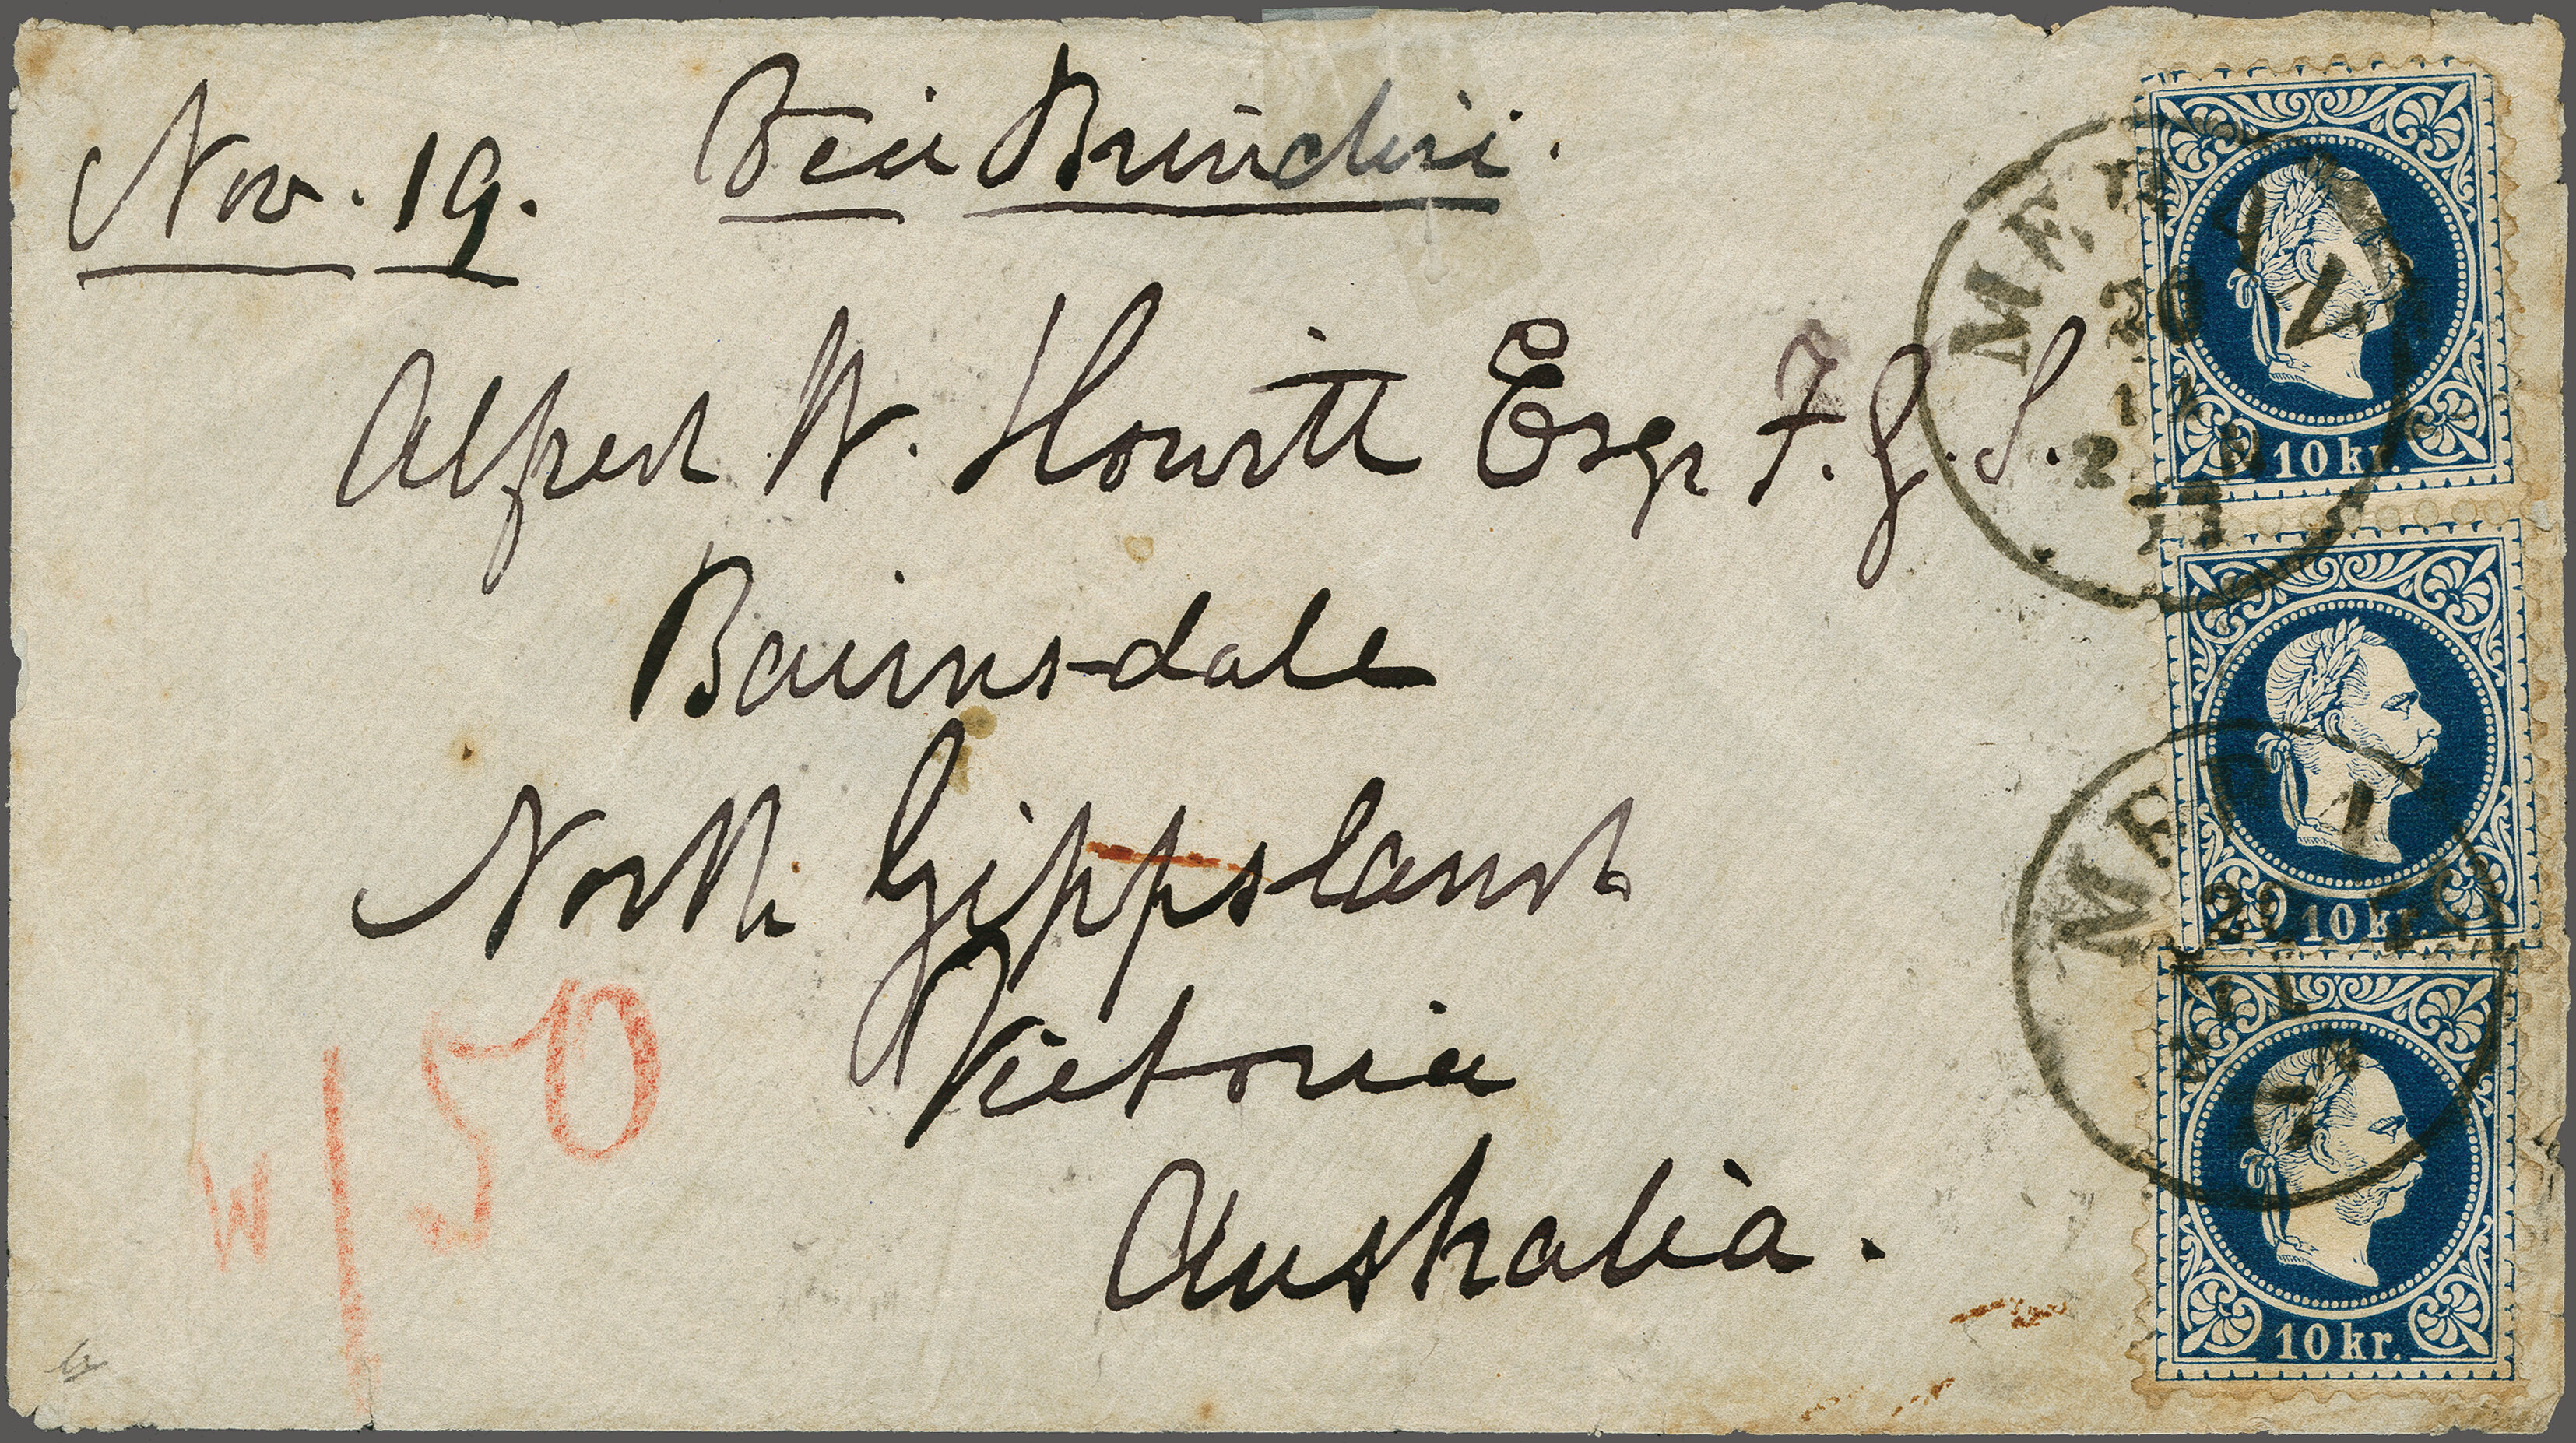 Nov. 19.
Via Brindisi.
Alfred W. Howitt Esqr F. G. S.
Bairnsdale
North Gippsland
Victoria
Australia.
W/50
10 kr.
10 kr.
10 kr.